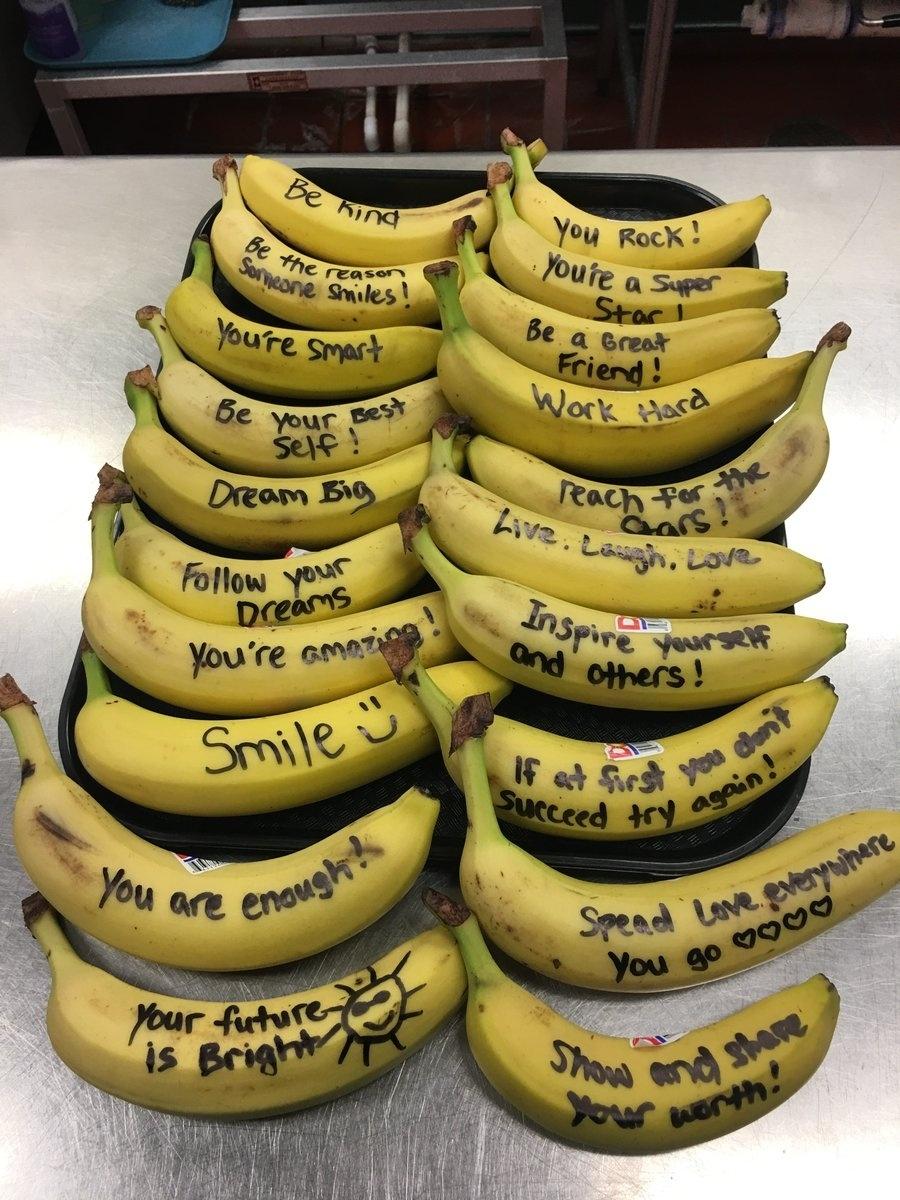 Be Kind
Be the reason
Someone Smiles!
You're Smart
Be your Best
Self!
Dream Big
Follow your
Dreams
You're amazing!
Smile
You are enough!
Your future
is Bright
You Rock!
You're a Super
Star!
Be a Great
Friend!
Work Hard
reach for the
Stars!
Live. Laugh. Love
Inspire yourself
and others!
If at first you don't
succeed try again!
Spead Love everywhere
You go ♡♡♡♡
Show and share
your worth!